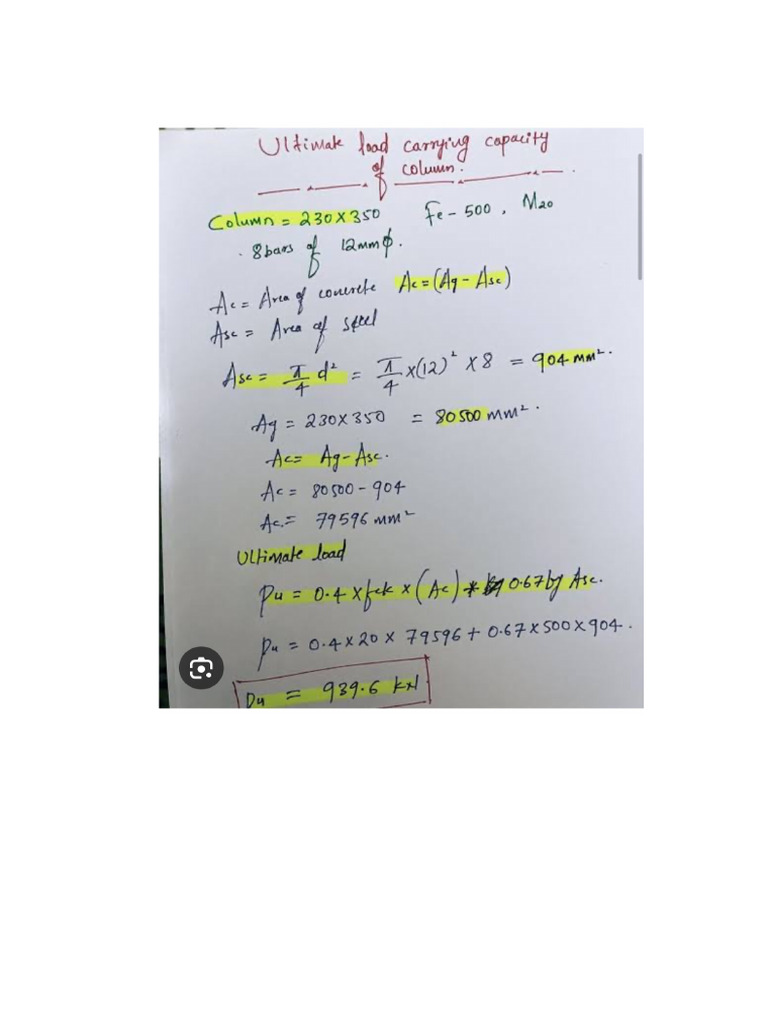 Ultimate load carrying capacity
of column.
Column = 230 x 350 Fe - 500 , M20
. 8 bars of 12mm ϕ.
Ac = Area of concrete Ac = (Ag - Asc)
Asc = Area of steel
Asc = π/4 d² = π/4 x (12)² x 8 = 904 mm².
Ag = 230 x 350 = 80500 mm².
Ac = Ag - Asc.
Ac = 80500 - 904
Ac. = 79596 mm²
Ultimate load
Pu = 0.4 x fck x (Ac) + 0.67 fy Asc.
Pu = 0.4 x 20 x 79596 + 0.67 x 500 x 904.
Pu = 939.6 kN